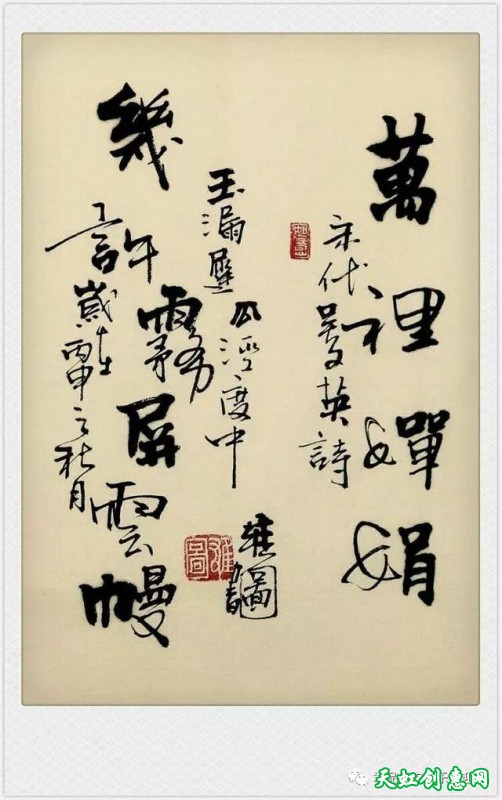 萬裡嬋娟
宋代吳文英詩
幾許霧屏雲幔
玉漏遲 瓜涇度中
歲在丙申之秋月
雅圖
天虹创惠网